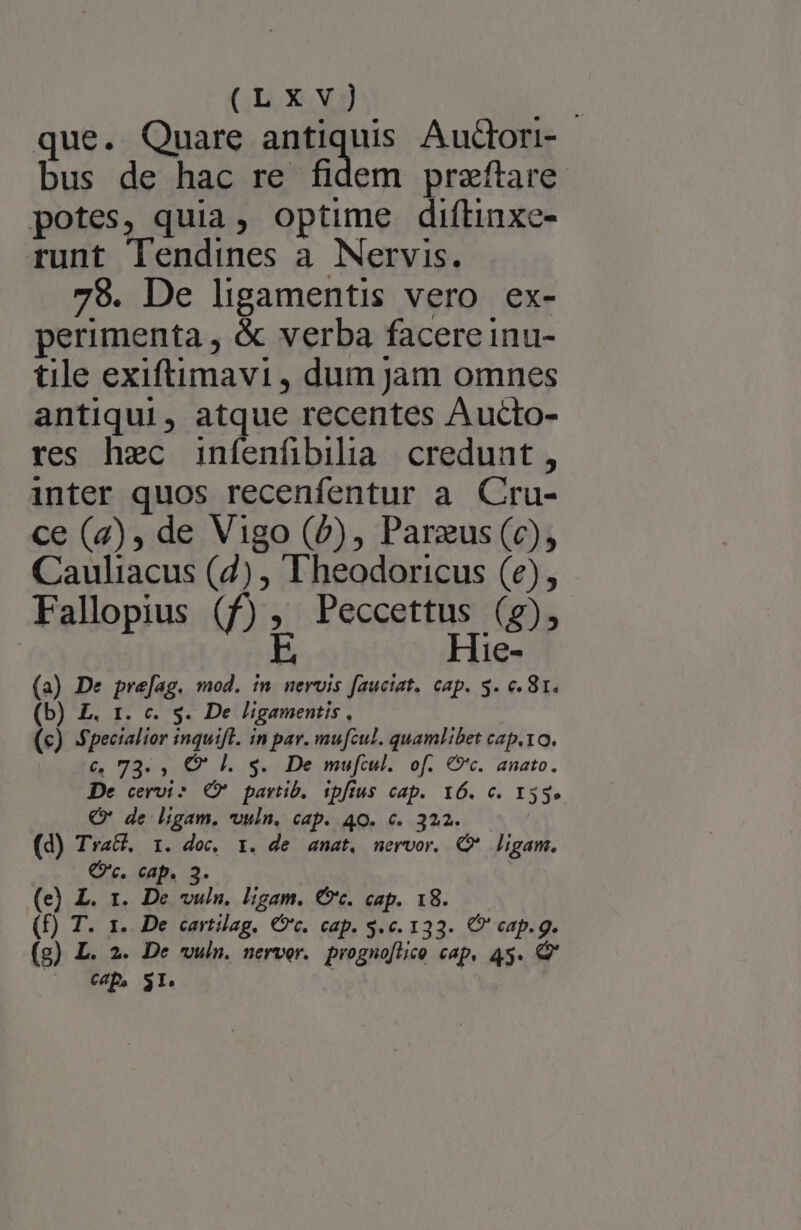 (LXV)
que. Quare antiquis Auctori-
bus de hac re fidem præſtare
potes, quia, optime diſtinxe-
runt Tendines a Nervis.
78. De ligamentis vero ex-
perimenta, & verba facere inu-
tile exiſtimavi, dum jam omnes
antiqui, atque recentes Aucto-
res hæc inſenſibilia credunt,
inter quos recenſentur a Cru-
ce (a), de Vigo (b), Paræus (c),
Cauliacus (d), Theodoricus (e),
Fallopius (f), Peccettus (g),
E Hie-
(a) De preſag. mod. in nervis ſauciat. cap. 5. c. 81.
(b) L. 1. c. 5. De ligamentis.
(c) Specialior inquiſt. in par. muſcul. quamlibet cap. 10.
c. 73., & l. 5. De muſcul. oſ. &c. anato.
De cervi: & partib. ipſius cap. 16. c. 155.
& de ligam. vuln. cap. 40. c. 322.
(d) Tract. 1. doc. 1. de anat. nervor. & ligam.
&c. cap. 3.
(e) L. 1. De vuln. ligam. &c. cap. 18.
(f) T. 1. De cartilag. &c. cap. 5. c. 133. & cap. 9.
(g) L. 2. De vuln. nervor. prognoſtico cap. 45. &
cap. 51.